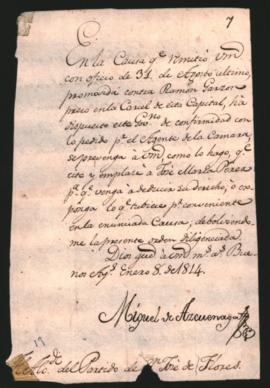 7
En la Causa q.e remitió Vmd
con oficio de 31 de Agosto ultimo,
promovida contra Ramon Garzon
preso en la Carcel de esta Capital, há
dispuesto este Gov.no de conformidad con
lo pedido p.r el Agente de la Camara,
se prevenga á Vmd, como lo hago, q.e
cite y emplaze á José Maria Perez
p.a q.e venga á deducir su derecho, o ex-
ponga lo q.e tubiere p.r conveniente
en la enunciada Causa; debolviendo-
me la presente orden diligenciada.
Dios gue á Vmd m.s a.s Bue-
nos Ay.s Enero 8. de 1814.
Miguel de Azcuenaga
del Partido de Sn José de Flores.